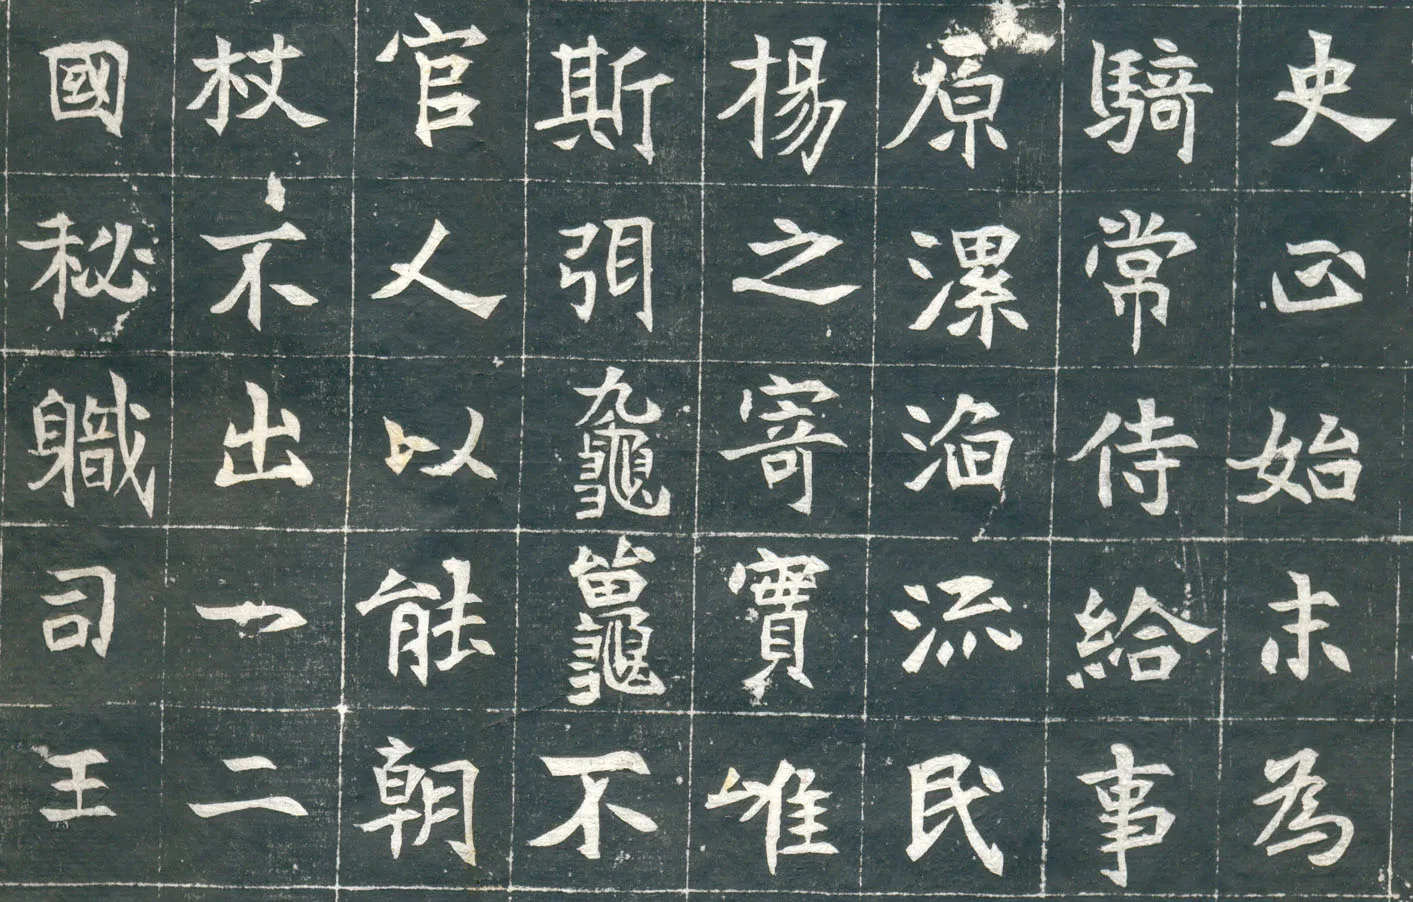 史正始末為
騎常侍給事
原漯淊流民
楊之寄實唯
斯弭不
官人以能朝
杖不出一二
國秘軄司王